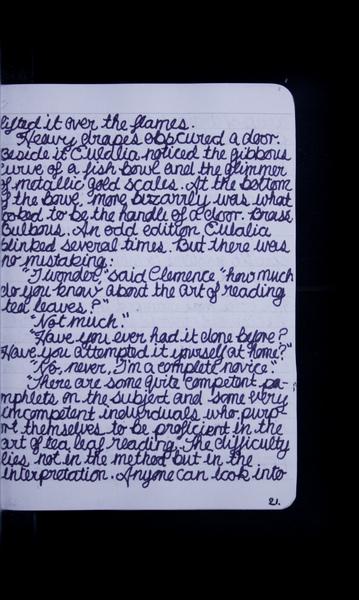 lifted it over the flames.
Heavy drapes obscured a door.
Beside it Eulalia noticed the gibbous
curve of a fish bowl and the glimmer
of metallic gold scales. At the bottom
of the bowl, more bizarrly was what
looked to be the handle of a door. Brass.
Bulbous. An odd edition Eulalia
blinked several times. But there was
no mistaking:
"I wonder" said Clemence "how much
do you know about the art of reading
tea leaves?"
"Not much."
"Have you ever had it done before?
Have you attempted it yourself at home?"
"No, never, I'm a complete novice."
"There are some quite competent pa-
mphlets on the subject and some very
incompetent individuals who purpo-
rt themselves to be proficient in the
art of tea leaf reading. The difficulty
lies not in the method but in the
interpretation. Anyone can look into
21.